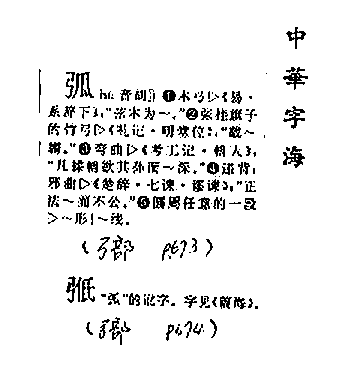 中華字海
弧 hú 音胡①木弓▷《易·
系辞下》:"弦木为～。"②张挂旗子
的竹弓▷《礼记·明堂位》:"载～
韣。"③弯曲▷《考工记·辀人》:
"凡揉辀欲其孙而～深。"④违背;
邪曲▷《楚辞·七谏·谬谏》:"正
法～而不公。"⑤圆周任意的一段
▷～形|～线。
(弓部 p673)
"弧"的讹字。字见《龍龕》。
(弓部 p674)